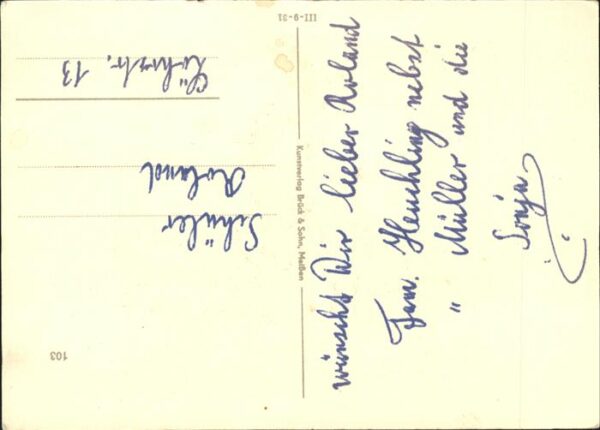 wünscht Dir lieber Roland
Fam. Heuchling nebst
" Müller und die
Sonja
Kunstverlag Brück & Sohn, Meißen
III-9-31
Schüler
Roland
13
103